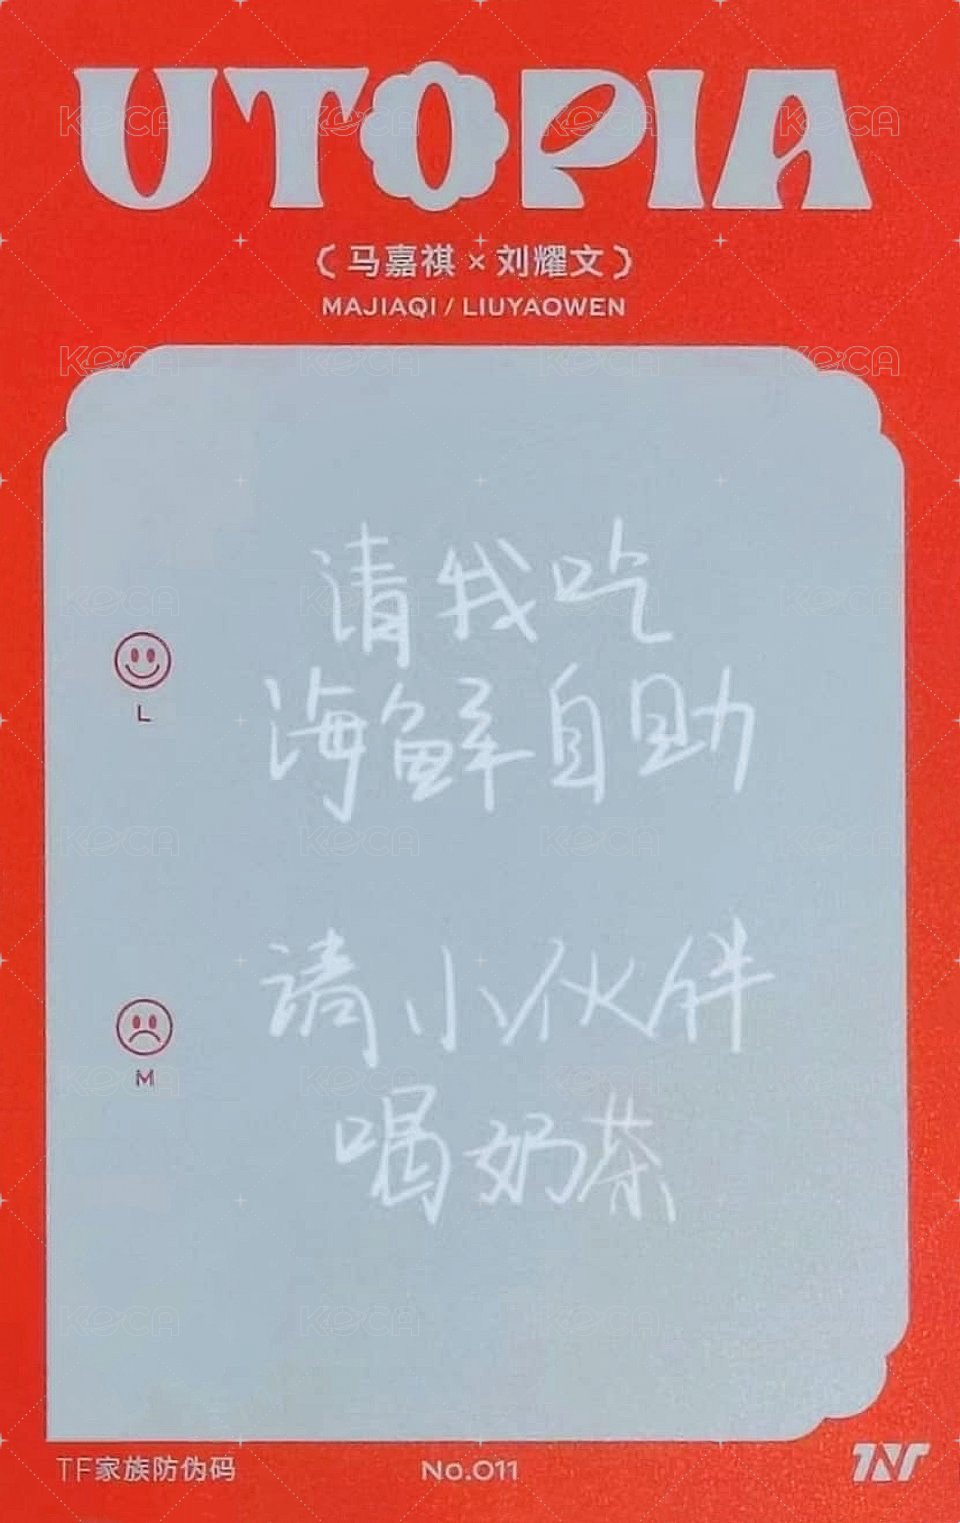 UTOPIA
(马嘉祺×刘耀文)
MAJIAQI / LIUYAOWEN
请我吃
海鲜自助
L
请小伙伴
喝奶茶
M
TF家族防伪码
No.011
TNT
KOCA